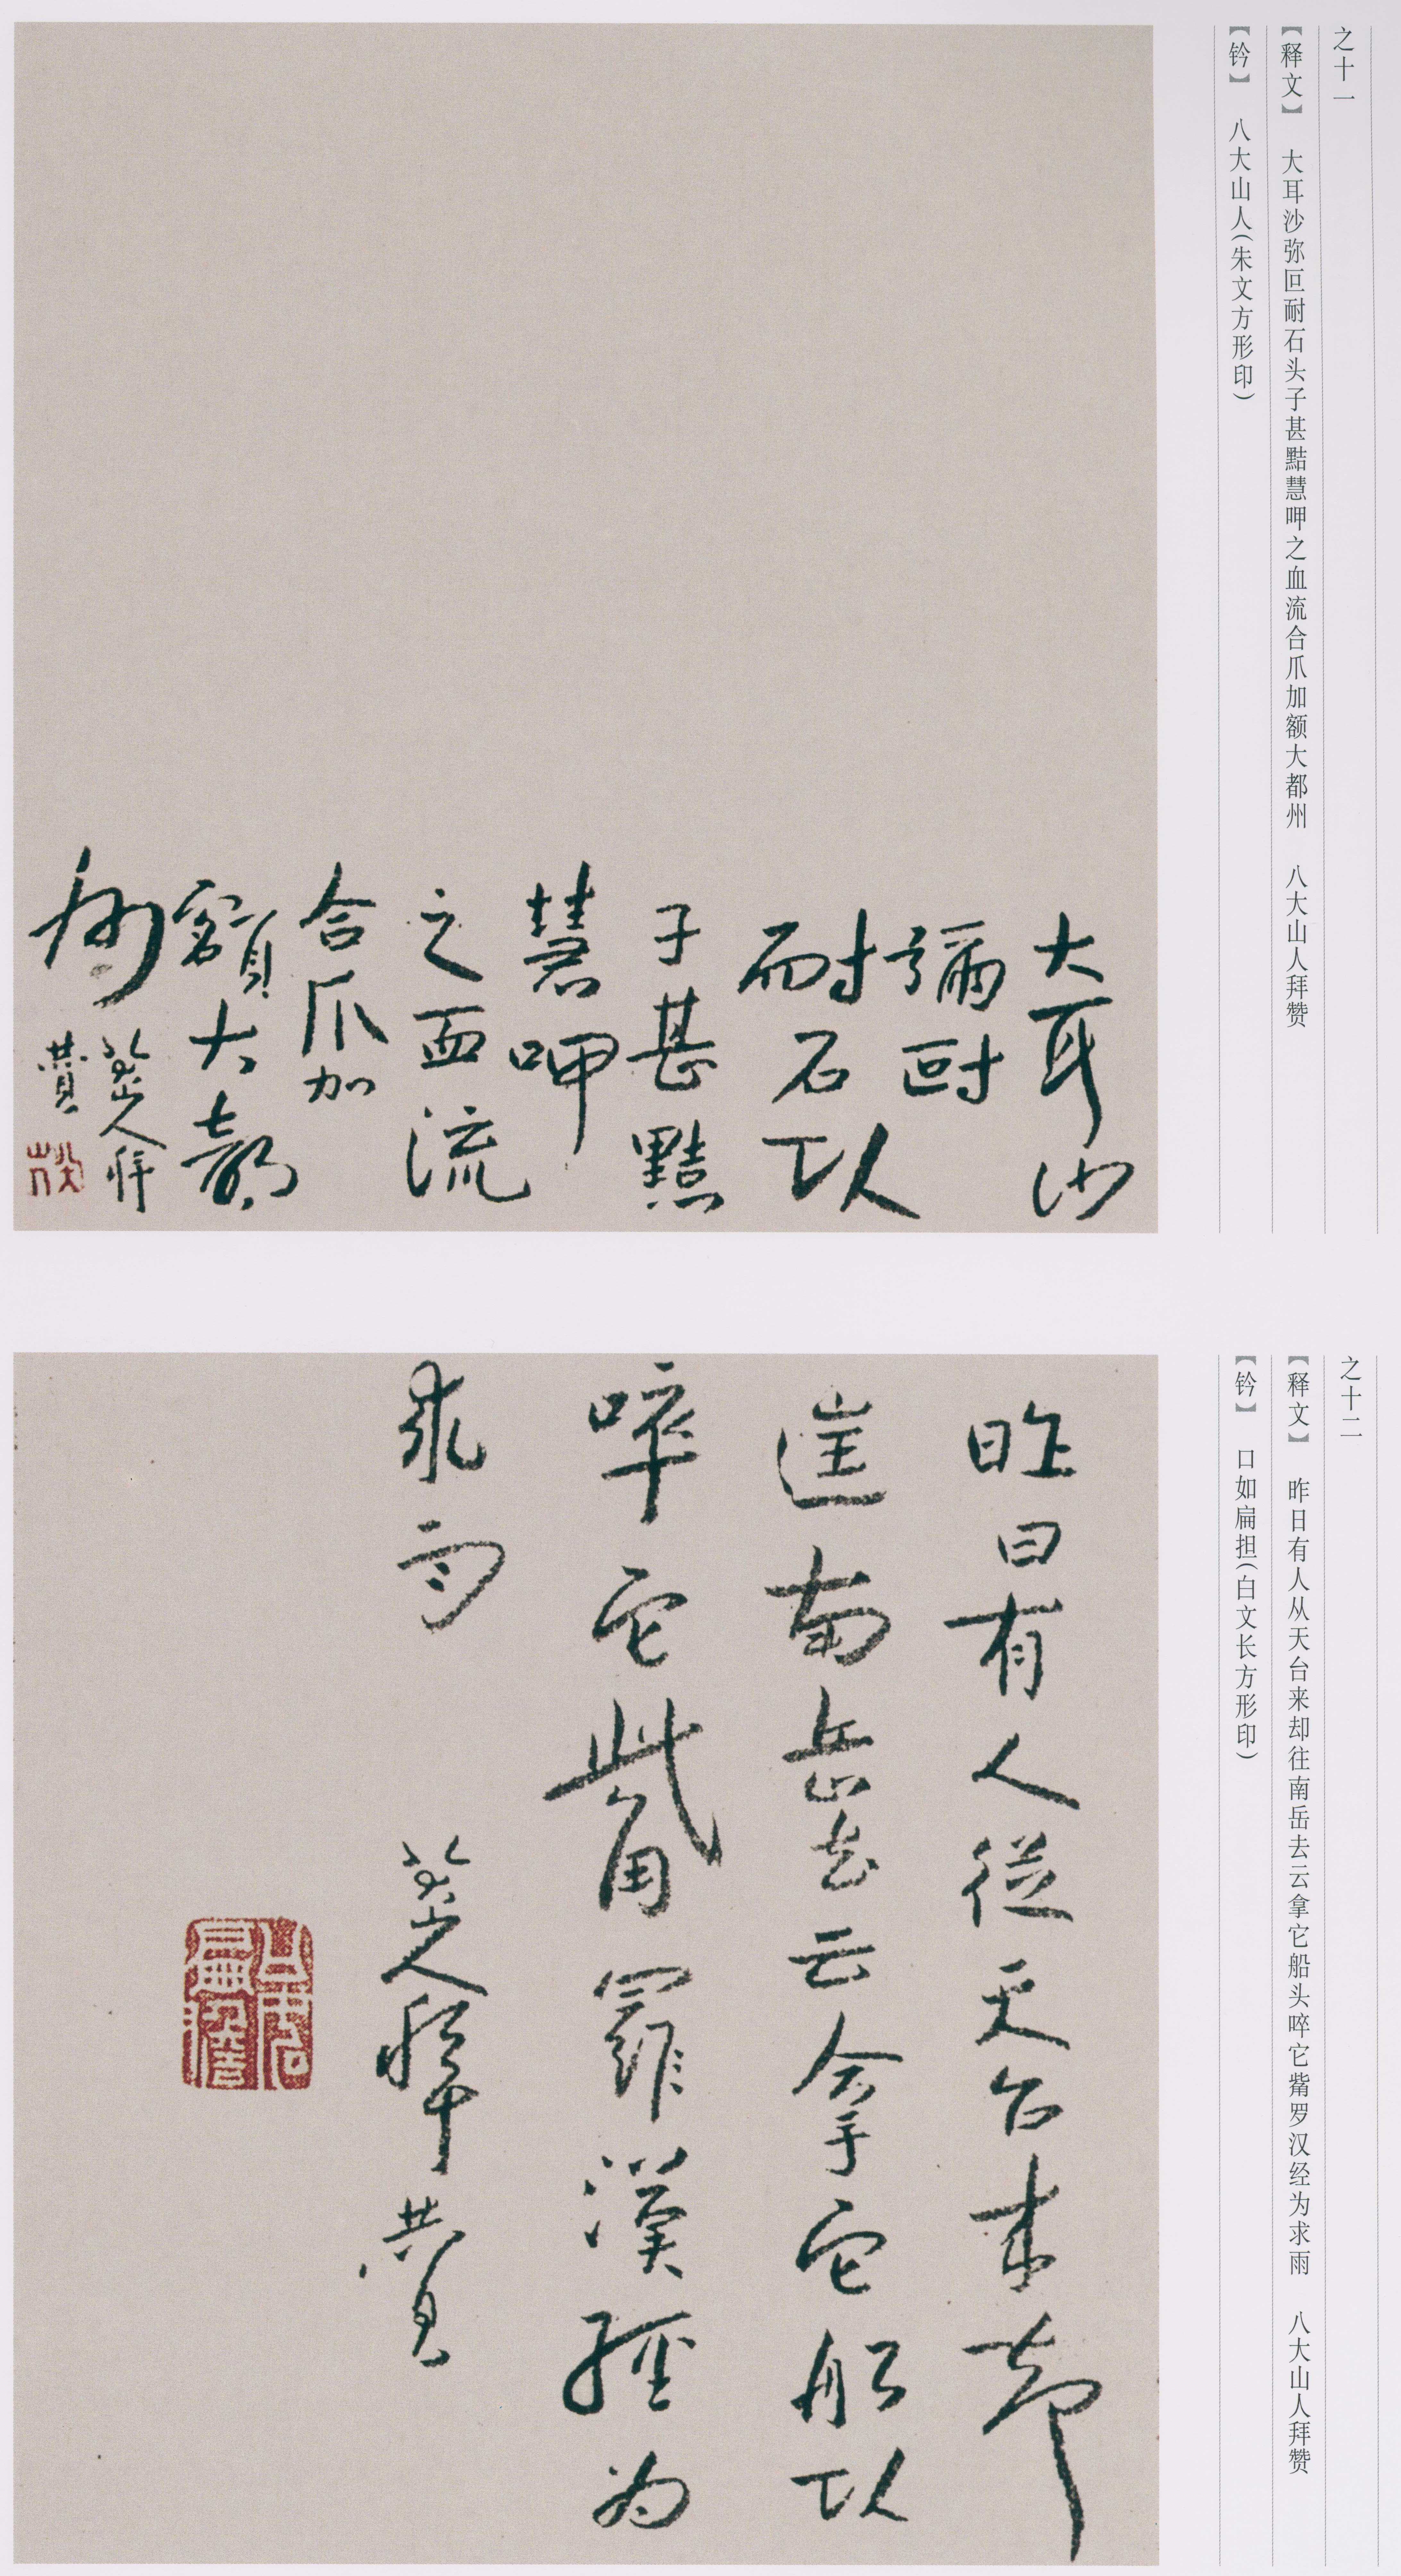 之十一
【释文】 大耳沙弥叵耐石头子甚黠慧呷之血流合爪加额大都州 八大山人拜赞
【钤】 八大山人(朱文方形印)
大耳沙
彌叵
耐石头
子甚黠
慧呷
之血流
合爪加
額大都
州 八大山人拜
贊
之十二
【释文】 昨日有人从天台来却往南岳去云拿它船头啐它觜罗汉经为求雨 八大山人拜赞
【钤】 口如扁担(白文长方形印)
昨日有人從天台来却
往南岳去云拿它船头
啐它觜羅漢經为
求雨 八大山人拜贊
口如扁担